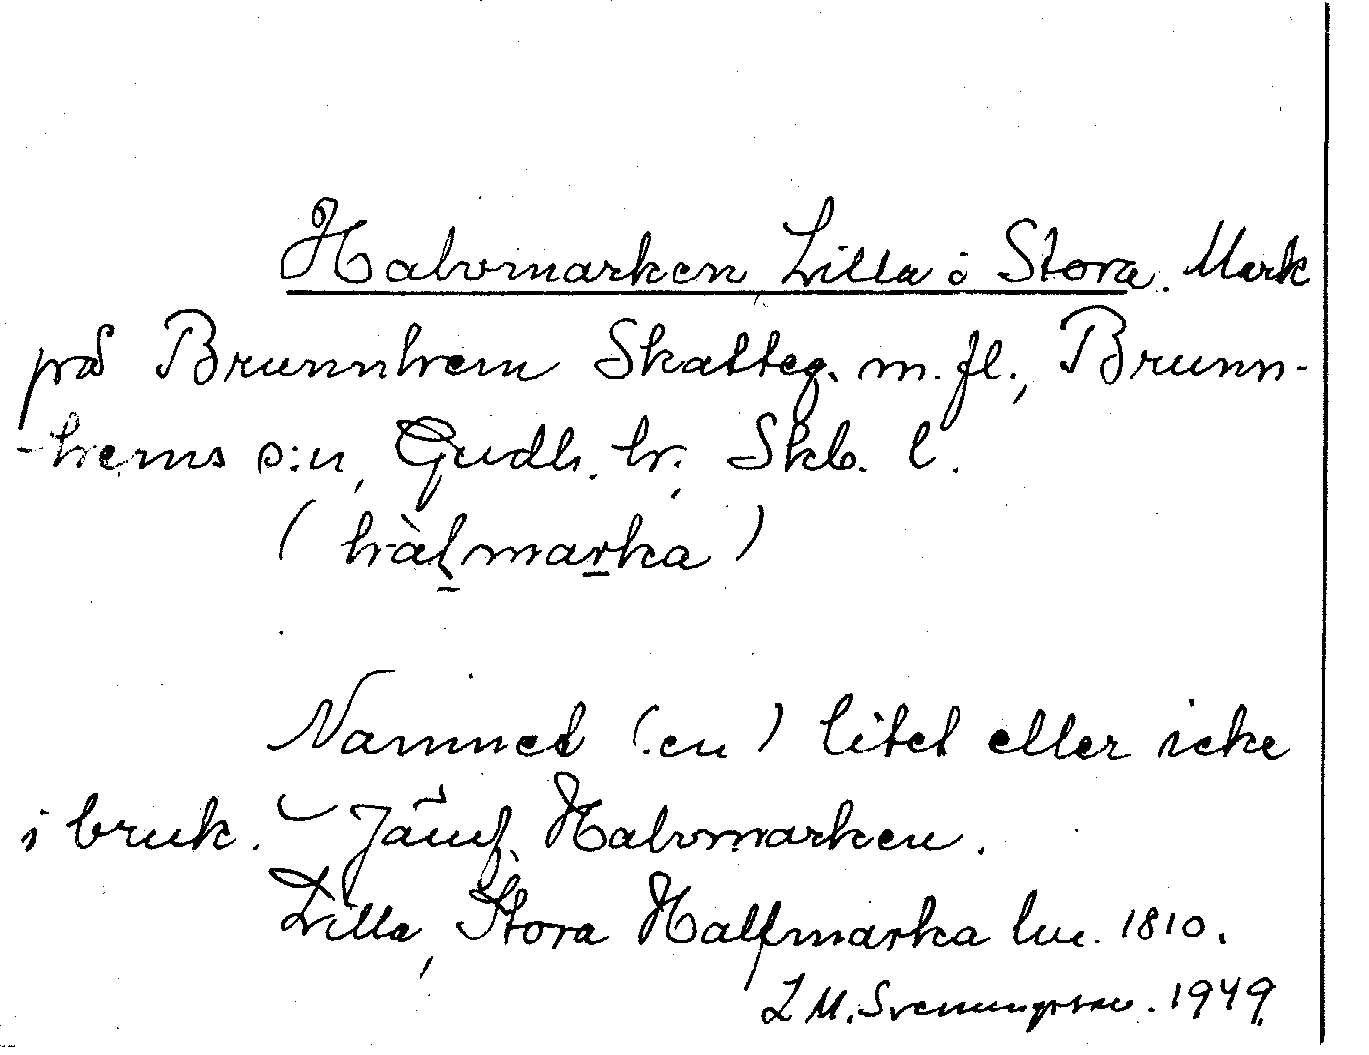 Halvmarken, Lilla o Stora. Mark
på Brunnhem Skatteg. m. fl., Brunn-
-hems s:n, Gudh. hr. Skb. l.
( hàḻmaṟka )
Namnet (.en) litet eller icke
i bruk. Jämf. Halvmarken.
Lilla, Stora Halfmarka lm. 1810.
L M. Svenungsson. 1949.